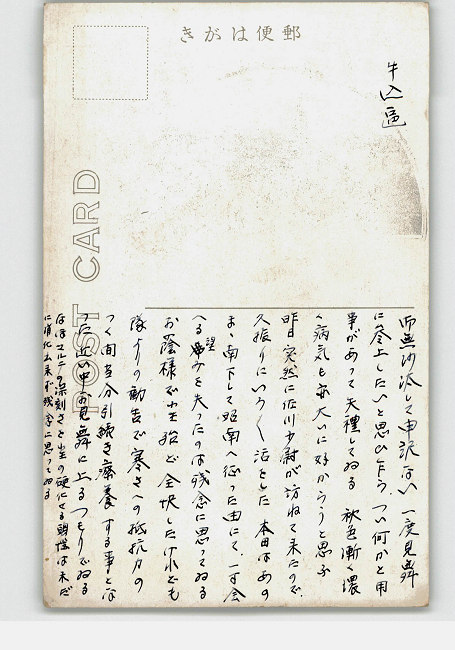 郵便はがき
POST CARD
牛込區
御無沙汰して申訳ない 一度見舞
に参上したいと思ひ乍ら、つい何かと用
事があって失禮してゐる 秋色漸く濃
く病気も亦大いに好からうと思ふ
昨日突然に佐川少尉が訪ねて来たので
久振りにいろいろ話をした 本田はあの
まゝ南下して昭南へ征った由にて、一寸会
へる望みを失ったのは残念に思ってゐる
お蔭様で小生殆ど全快したけれども
隊よりの勧告で寒さへの抵抗力の
つく間当分引続き療養する事とな
った 近い中お見舞に上るつもりでゐる
なほマルテの深刻さと小生の硬化せる頭脳は未だ
に消化出来ず残念に思ってゐる